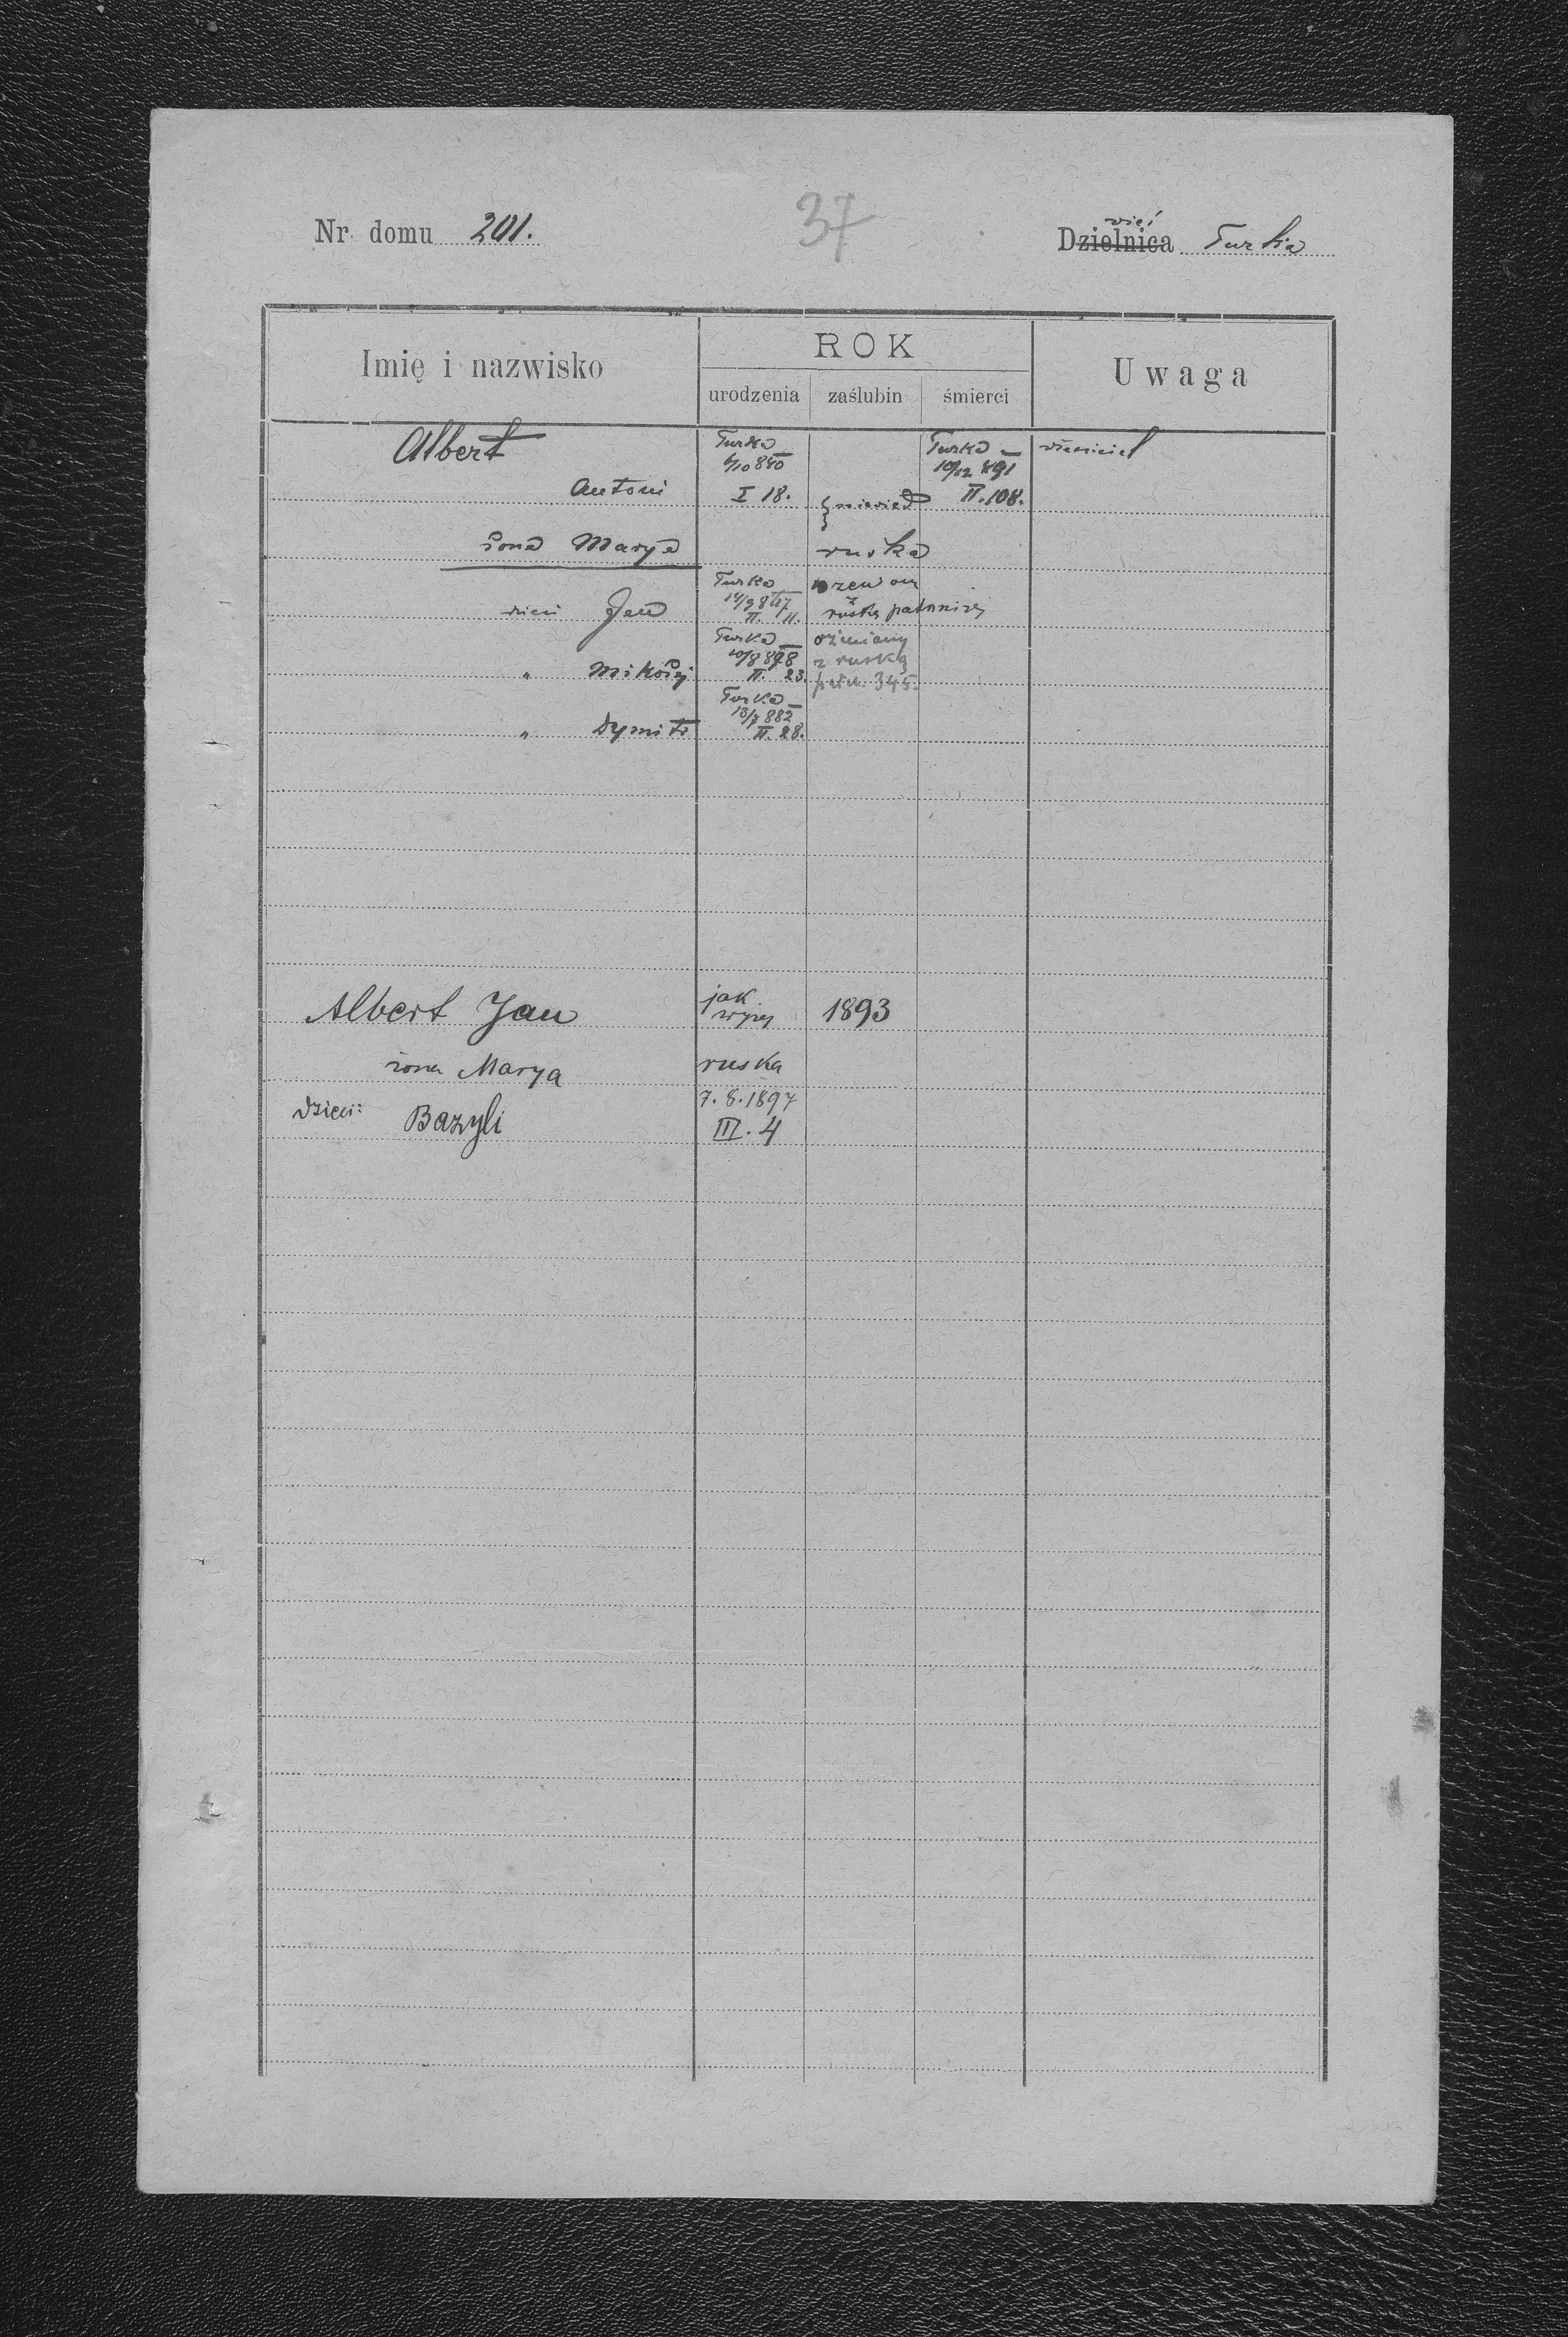 Nr domu 201.
37
wieś
Dzielnica Turka
Imię i nazwisko
ROK
urodzenia zaślubin śmierci
Uwaga
Albert
Turka
6/10 840
Turka
10/12 891
Antoni
I 18.
II. 108.
żona Marya
ruska
Turka
dzieci Jan
ruską patrz niżej
II. 11.
Turka
ożeniony
10/8 878
z ruską
" Mikołaj
II. 23.
patrz. 345.
Turka
13/7 882
" Dymitr
II. 28.
Albert Jan
jak wyżej
1893
żona Marya
ruska
Dzieci: Bazyli
7. 8. 1897
III. 4